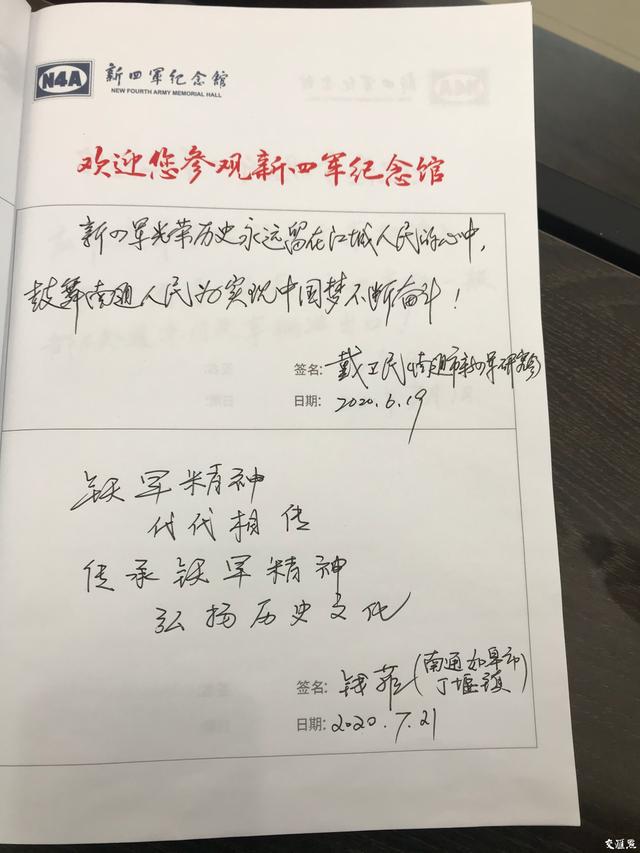 N4A
新四军纪念馆
NEW FOURTH ARMY MEMORIAL HALL
欢迎您参观新四军纪念馆
新四军光荣历史永远留在江城人民的心中，
鼓舞南通人民为实现中国梦不断奋斗！
签名：戴卫民（南通市新四军研究会）
日期：2020.6.19
铁军精神
代代相传
传承铁军精神
弘扬历史文化
签名：钱菲（南通如皋市
丁堰镇）
日期：2020.7.21
交汇点